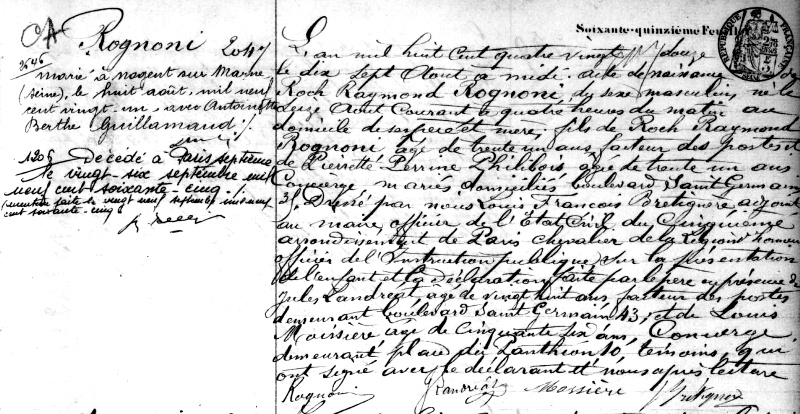 Soixante-quinzième Feuillet
RÉPUBLIQUE FRANÇAISE
CA
Rognoni 2047
2646
marié à nogent sur Marne
(seine), le huit août, mil neuf
cent vingt-un, avec Antoinette
Berthe Guillamaud ./.
1205 Décédé à Paris septième
le vingt-six septembre mil
neuf cent soixante-cinq ./.
mention faite le vingt neuf septembre mil neuf
cent soixante-cinq
L'an mil huit cent quatre vingt douze
le dix sept Août à midi. acte de naissance de
Roch Raymond Rognoni, du sexe masculin, né le
Août Courant à quatre heures du matin au
domicile de ses père et mère; fils de Roch Raymond
Rognoni âgé de trente un ans, facteur des postes et
de Pierrette Perrine Philibois âgée de trente un ans
Concierge, mariés domiciliés boulevard Saint Germain
31. Dressé par nous Louis François adjoint
au maire, officier de l'Etat Civil du Cinquième
arrondissement de Paris chevalier de la Légion d'honneur
officier de l'Instruction publique, sur la présentation
de l'enfant et la déclaration faite par le père en présence de
Jules Landréat, âgé de vingt huit ans, facteur des postes
demeurant boulevard Saint Germain 43; et de Louis
Mossière âgé de Cinquante six ans, Concierge,
demeurant place du Panthéon 10, témoins qui
ont signé avec le déclarant et nous après lecture
Rognoni Landréat Mossière